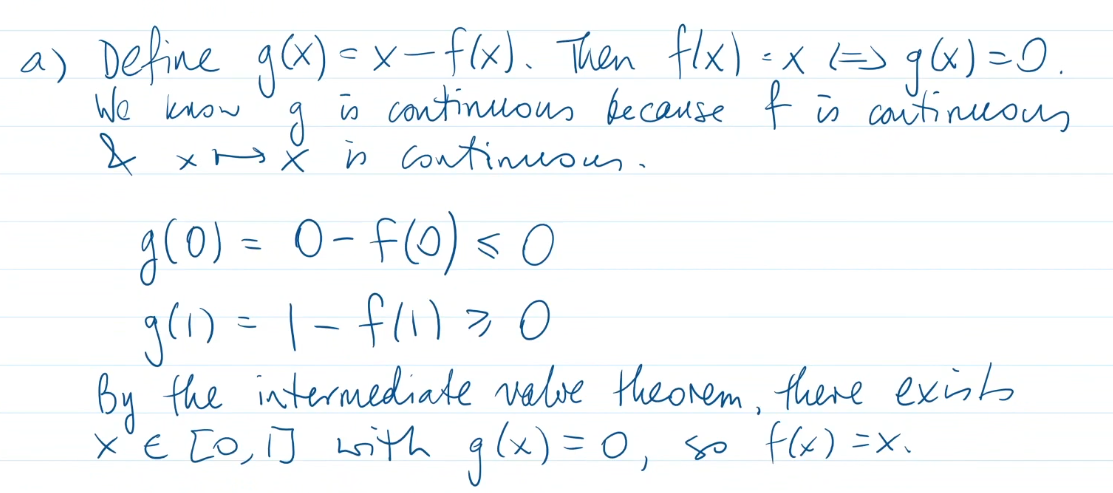 a) Define g(x) = x - f(x). Then f(x) = x ⟺ g(x) = 0.
We know g is continuous because f is continuous
& x ↦ x is continuous.
g(0) = 0 - f(0) ≤ 0
g(1) = 1 - f(1) ≥ 0
By the intermediate value theorem, there exists
x ∈ [0,1] with g(x) = 0, so f(x) = x.